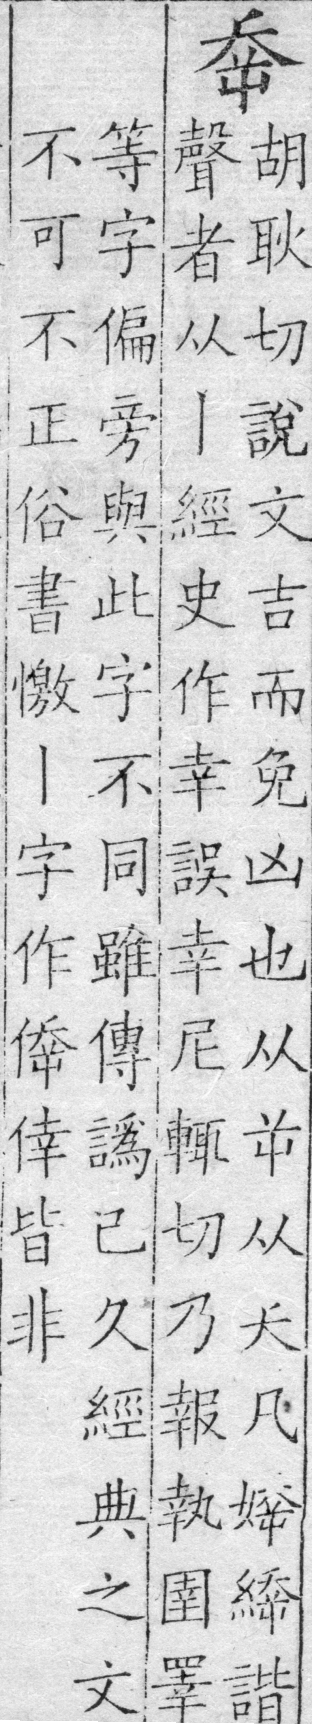 𡴘胡耿切說文吉而免凶也从屰从夭凡婞緈諧
聲者从丨經史作幸誤幸尼輒切乃報執圉睪
等字偏旁與此字不同雖傳譌已久經典之文
不可不正俗書憿丨字作倖皆非